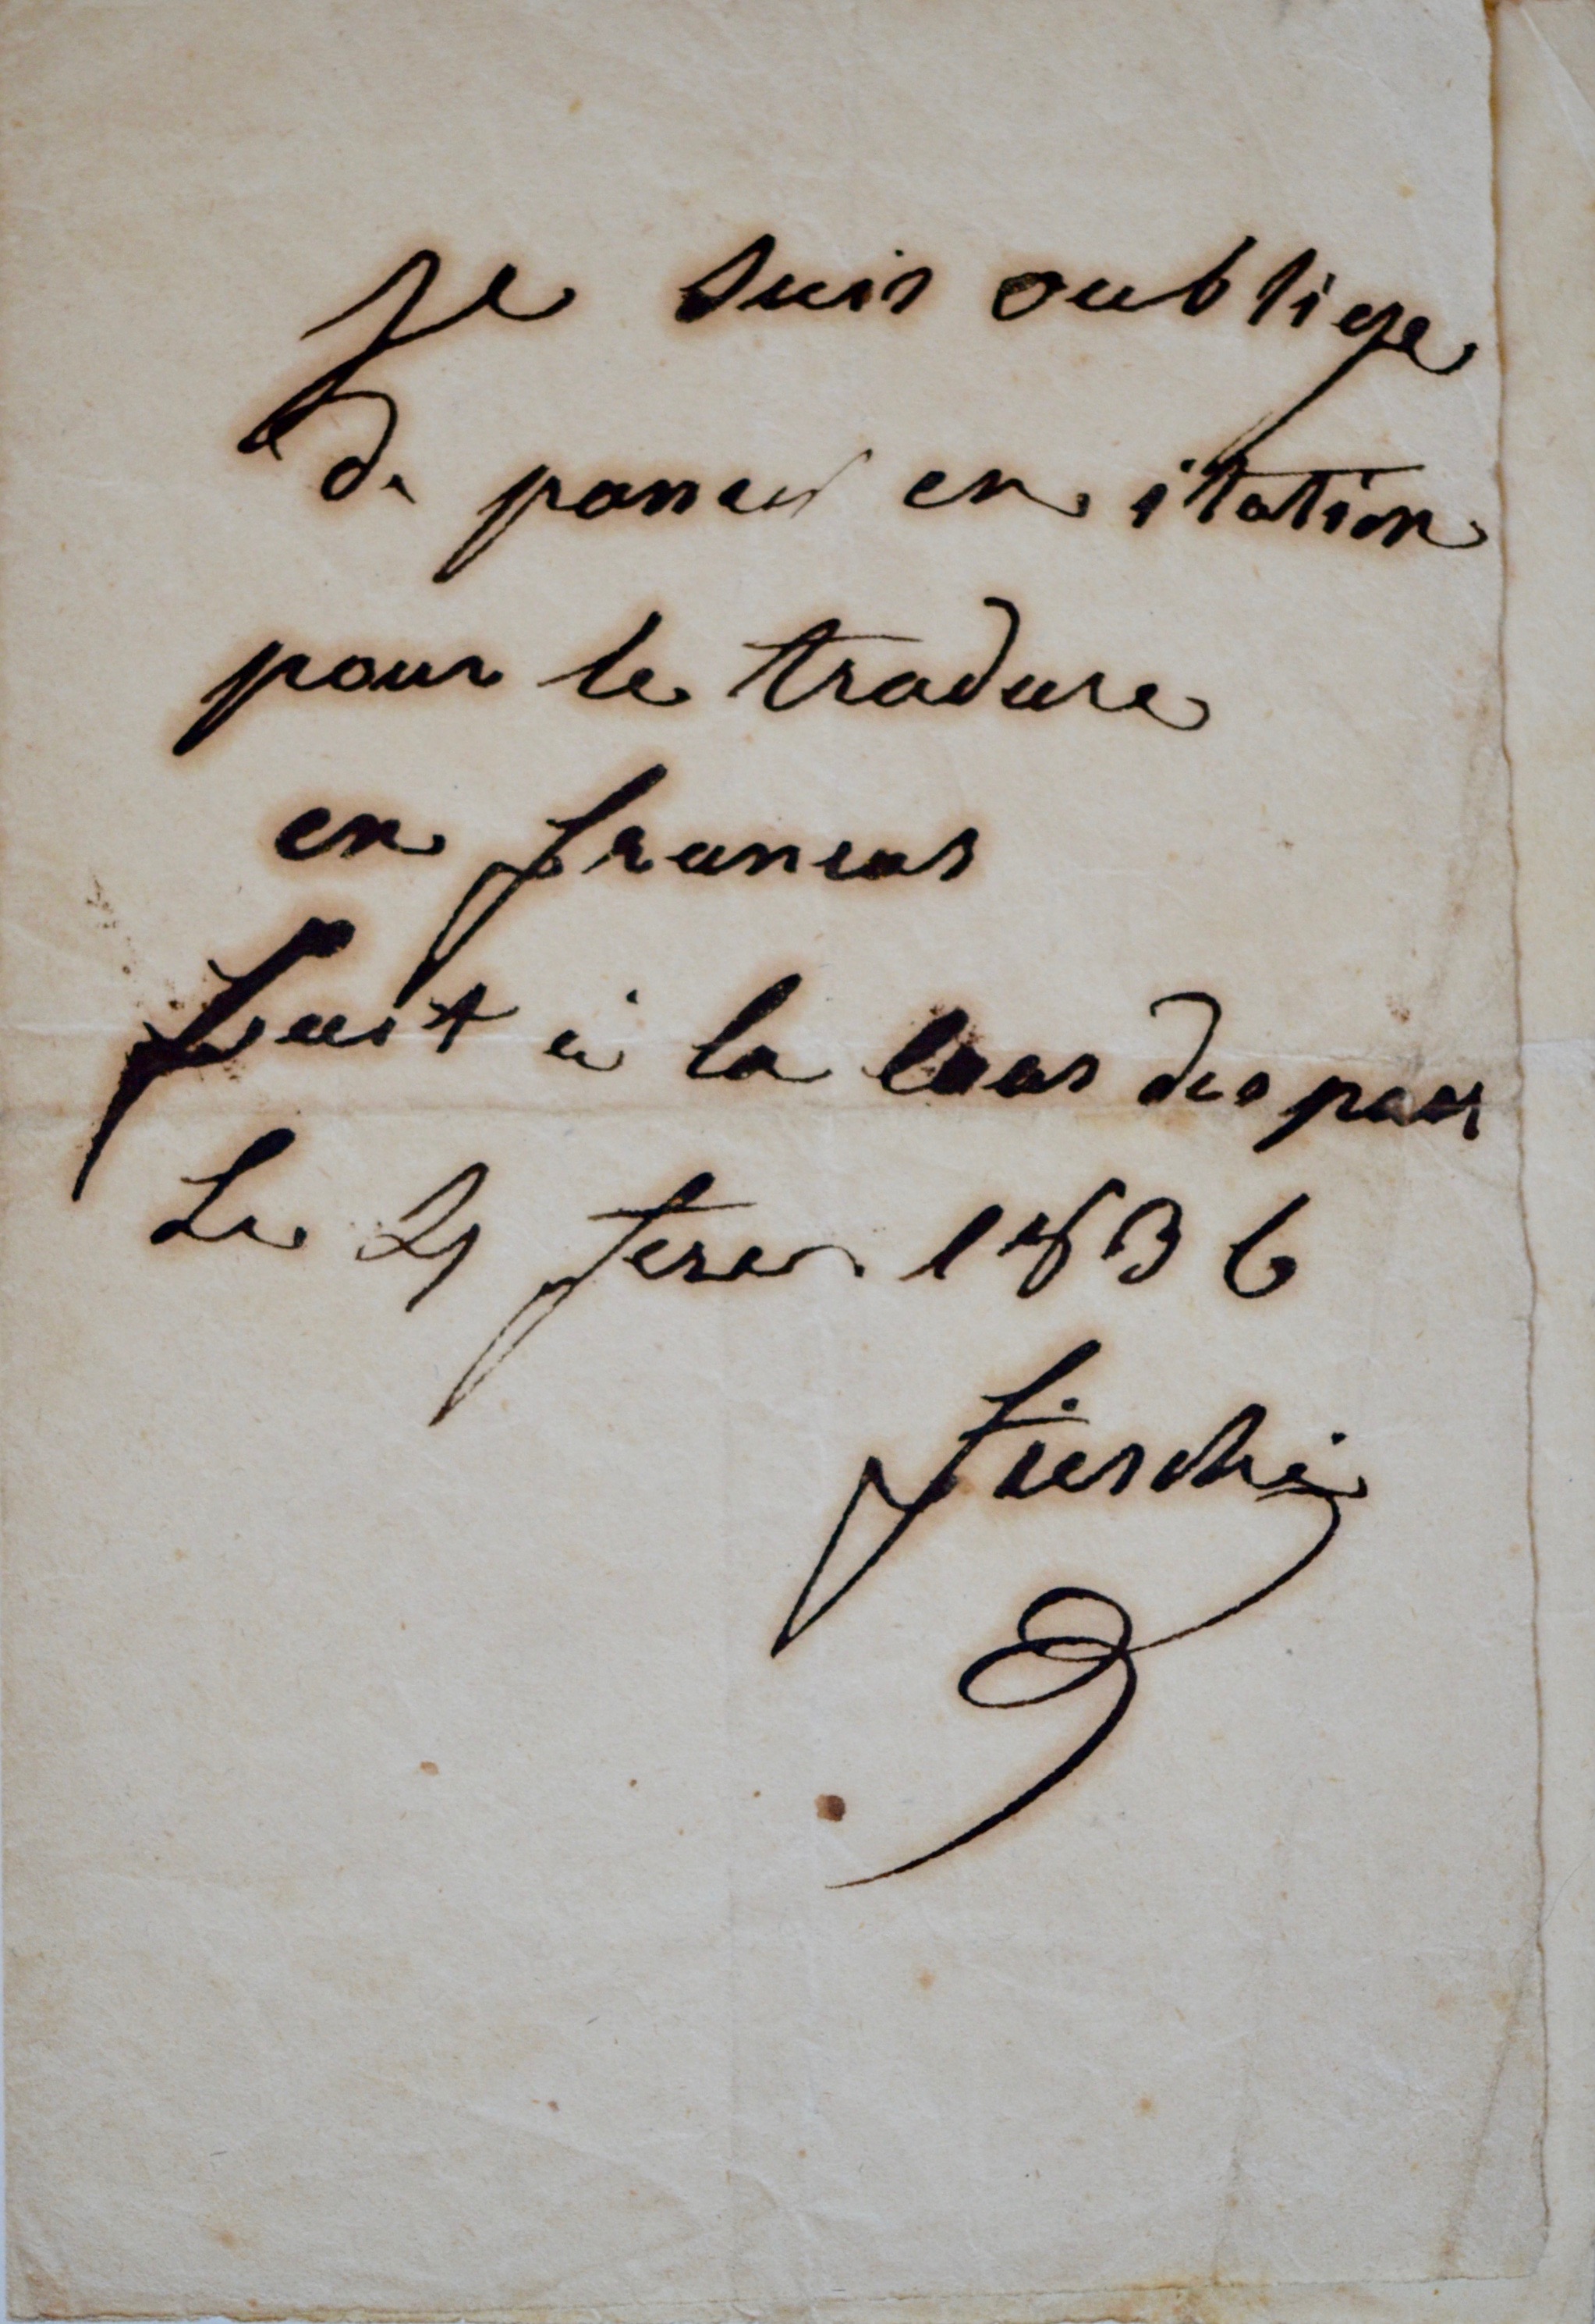 Je suis oublige
de panes en italien
pour le tradure
en francas
fait à la cour des pars
Le 4 fevr. 1836
fieschi